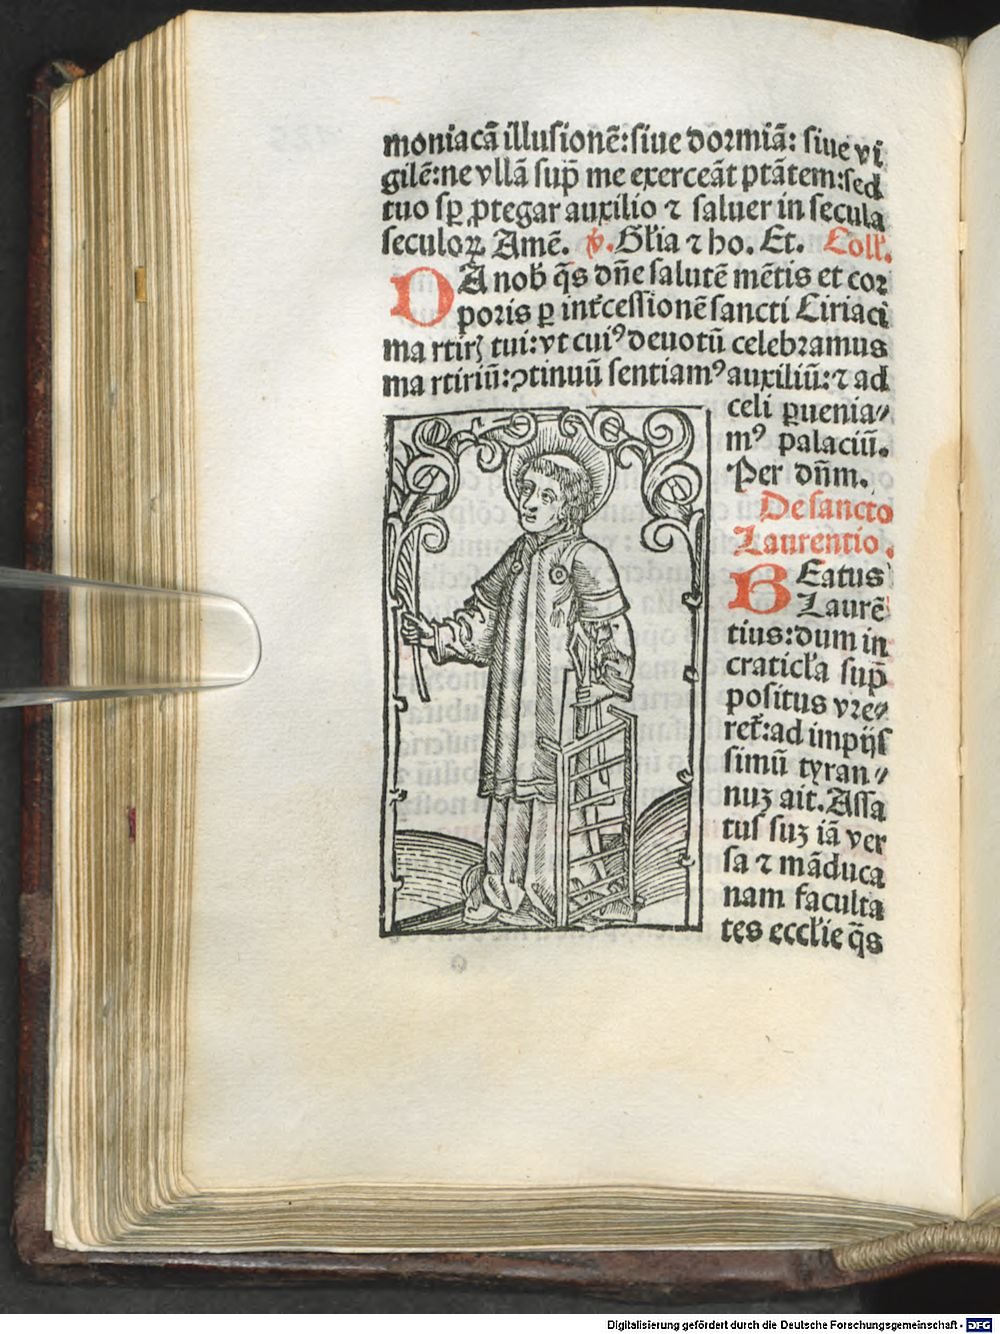 moniacā illusionē: siue dormiā: siue vi
gilē: ne vllā sup̄ me exerceāt ptātem: sed
tuo sp̄ ꝓtegar auxilio ⁊ saluer in secula
seculoꝝ Amē. ℣. Gl'ia ⁊ ho. Et. Coll'.
DA nob' q̄s dn̄e salutē mētis et cor
poris ꝑ int'cessionē sancti Ciriaci
martirꝫ tui: vt cuiꝰ deuotū celebramus
martiriū: ꝯtinuū sentiamꝰ auxiliū: ⁊ ad
celi ꝑuenia⸗
mꝰ palaciū.
Per dn̄m.
De sancto
Laurentio.
BEatus
Laurē
tius: dum in
craticl'a sup̄
positus vre⸗
ret': ad impijs
simū tyran⸗
nuꝫ ait. Assa
tus suꝫ iā ver
sa ⁊ māduca
nam faculta
tes eccl'ie q̄s
Digitalisierung gefördert durch die Deutsche Forschungsgemeinschaft - DFG